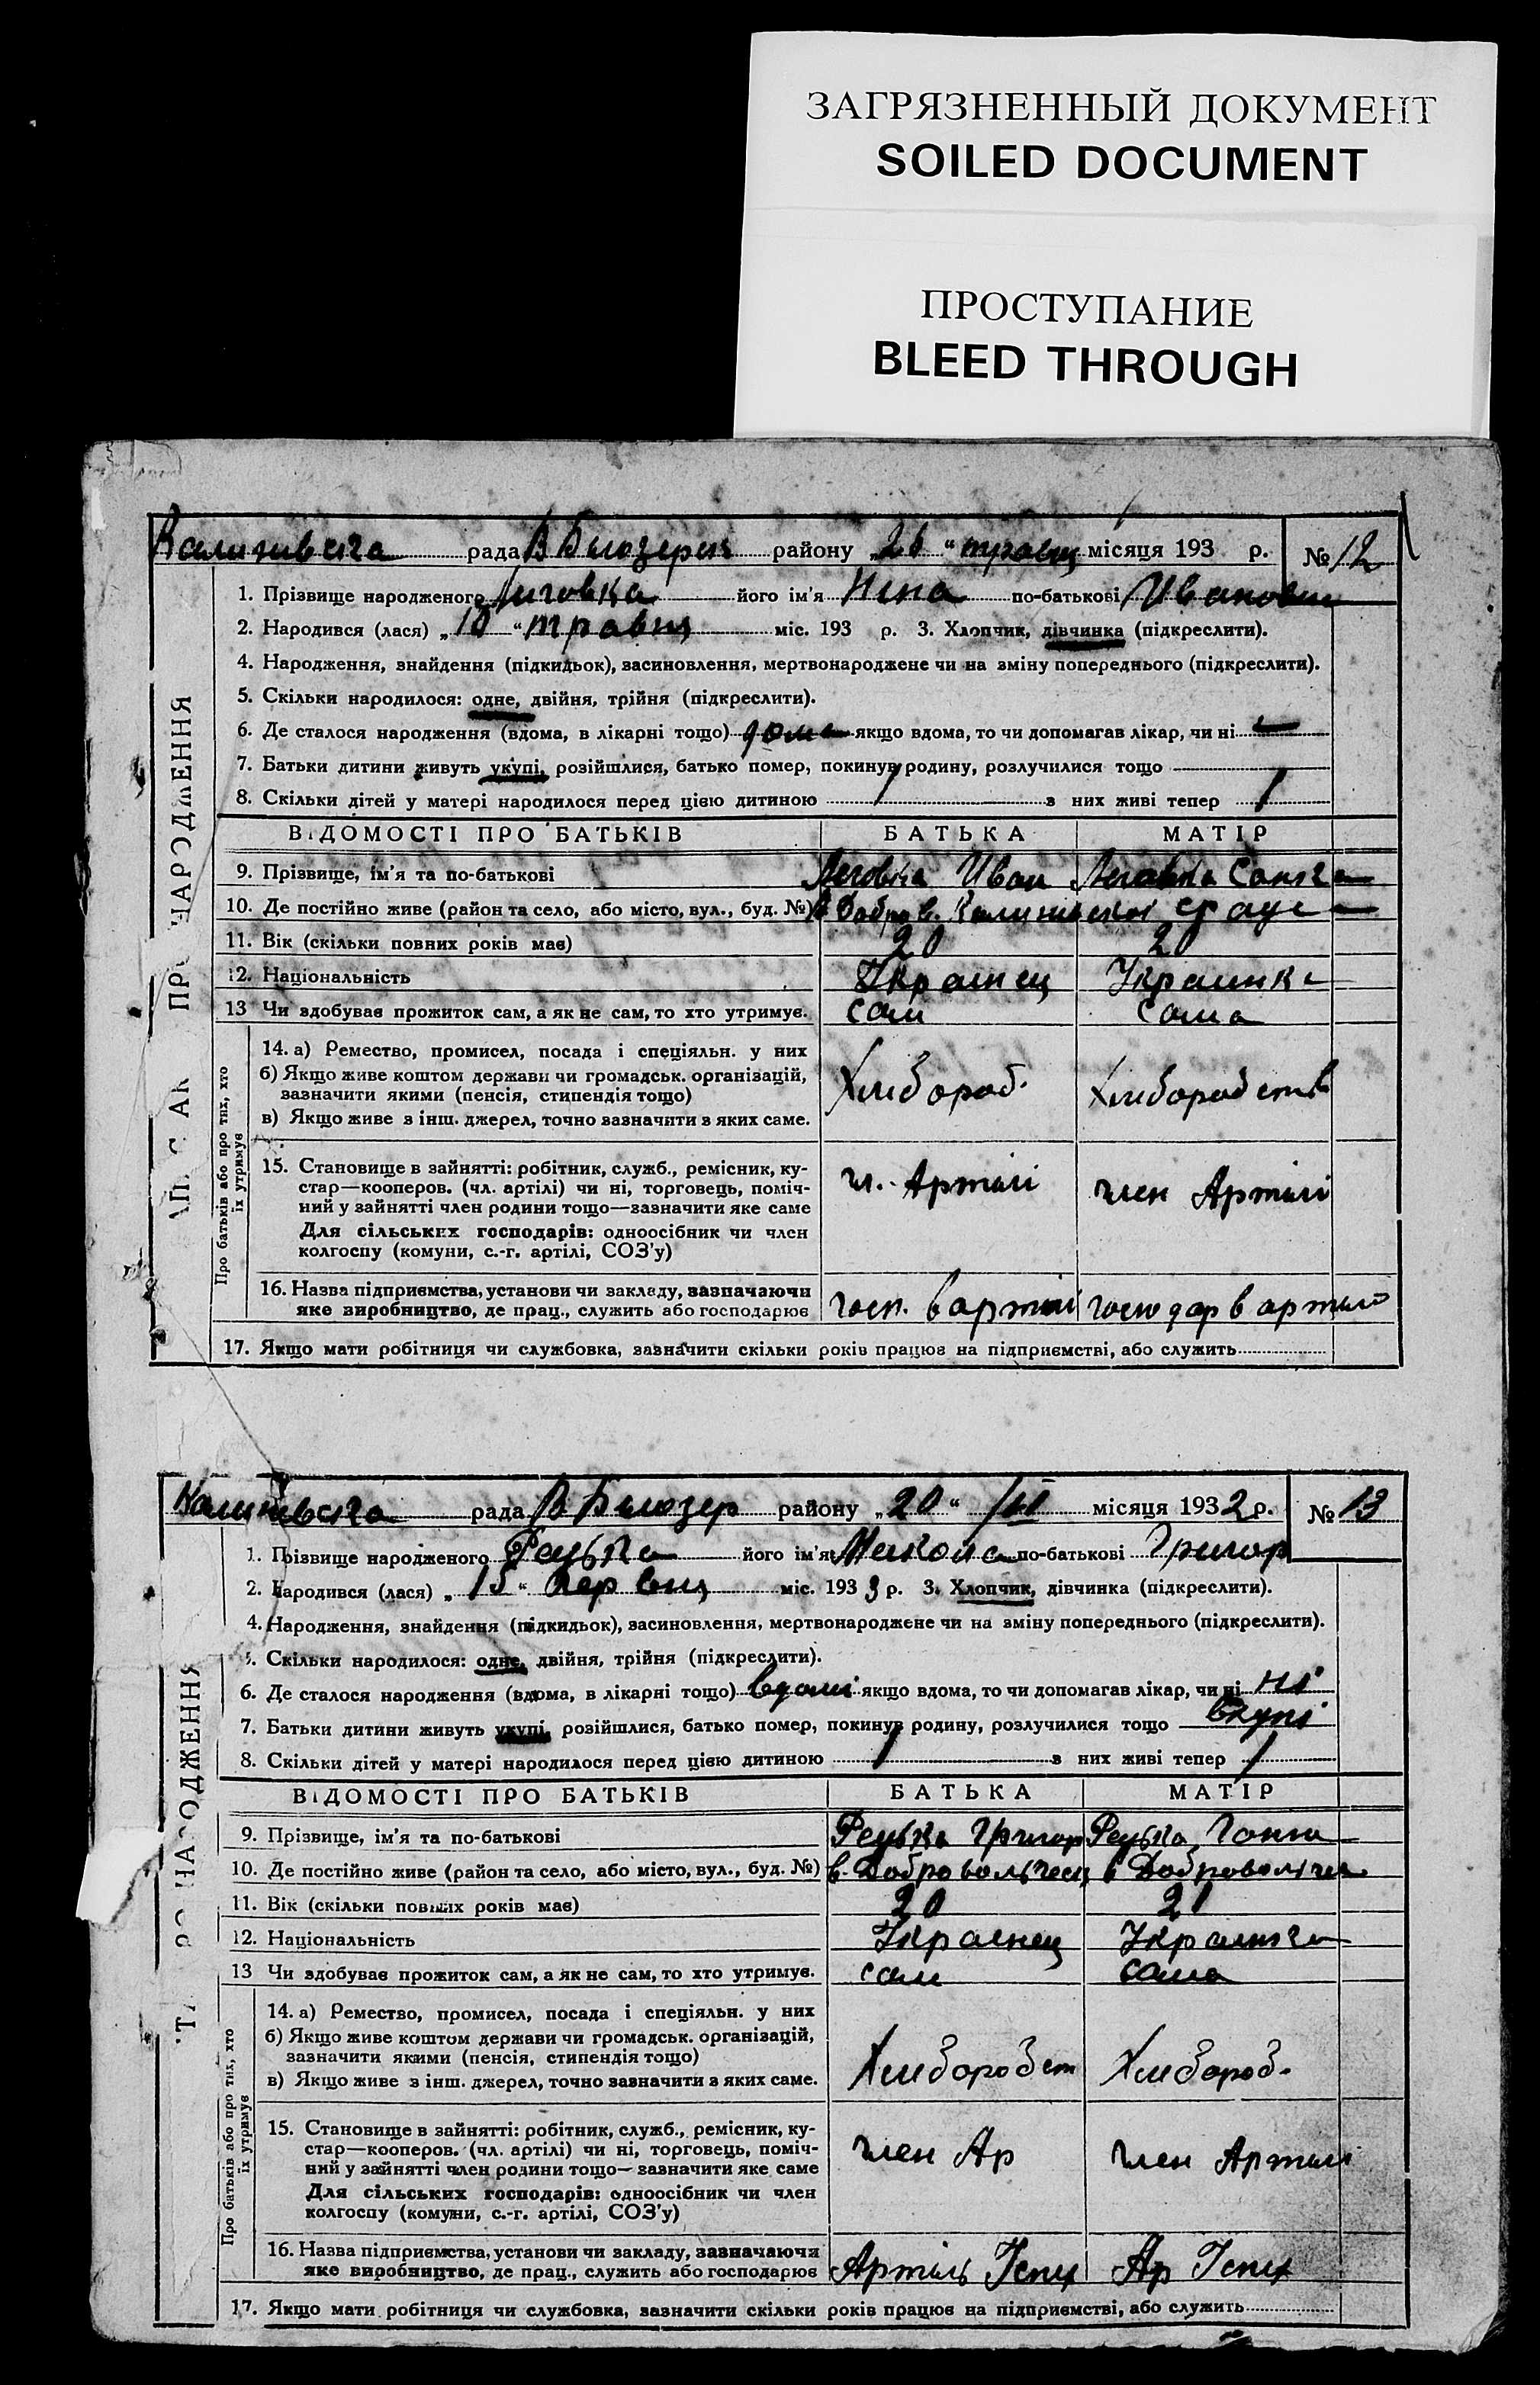 ЗАГРЯЗНЕННЫЙ ДОКУМЕНТ
SOILED DOCUMENT
ПРОСТУПАНИЕ
BLEED THROUGH
рада В Білозерск району „26“ травня місяця 193 р. № 12
1. Прізвище народженого його ім'я Нина по-батькові Иванов
2. Народився (лася) „10“ травня міс. 193 р. 3. Хлопчик, дівчинка (підкреслити).
4. Народження, знайдення (підкидьок), засиновлення, мертвонароджене чи на зміну попереднього (підкреслити).
5. Скільки народилося: одне, двійня, трійня (підкреслити).
6. Де сталося народження (вдома, в лікарні тощо) дома якщо вдома, то чи допомагав лікар, чи ні
7. Батьки дитини живуть укупі, розійшлися, батько помер, покинув родину, розлучилися тощо
8. Скільки дітей у матері народилося перед цією дитиною 1 з них живі тепер 1
ВІДОМОСТІ ПРО БАТЬКІВ БАТЬКА МАТІР
9. Прізвище, ім'я та по-батькові Леговка Иван Леговка
10. Де постійно живе (район та село, або місто, вул., буд. №)
11. Вік (скільки повних років має) 20 20
12. Національність Украинец Украинка
13 Чи здобуває прожиток сам, а як не сам, то хто утримує. сам сама
Про батьків або про тих, хто їх утримує
14. а) Ремество, промисел, посада і спеціяльн. у них
б) Якщо живе коштом держави чи громадськ. організацій,
зазначити якими (пенсія, стипендія тощо)
в) Якщо живе з інш. джерел, точно зазначити з яких саме.
Хлібороб. Хліборобств
15. Становище в зайнятті: робітник, служб., ремісник, ку-
стар—кооперов. (чл. артілі) чи ні, торговець, поміч-
ний у зайнятті член родини тощо—зазначити яке саме
Для сільських господарів: одноосібник чи член
колгоспу (комуни, с.-г. артілі, СОЗ'у)
чл. Артілі член Артілі
16. Назва підприємства, установи чи закладу, зазначаючи
яке виробництво, де прац., служить або господарює
госп. в артілі господар в артілі
17. Якщо мати робітниця чи службовка, зазначити скільки років працює на підприємстві, або служить
рада В Білозер району „20“ місяця 1932 р. № 13
1. Прізвище народженого Реувка його ім'я Микола по-батькові Григор
2. Народився (лася) „15“ червня міс. 193 р. 3. Хлопчик, дівчинка (підкреслити).
4. Народження, знайдення (підкидьок), засиновлення, мертвонароджене чи на зміну попереднього (підкреслити).
5. Скільки народилося: одне, двійня, трійня (підкреслити).
6. Де сталося народження (вдома, в лікарні тощо) вдомі якщо вдома, то чи допомагав лікар, чи ні ні
7. Батьки дитини живуть укупі, розійшлися, батько помер, покинув родину, розлучилися тощо вкупі
8. Скільки дітей у матері народилося перед цією дитиною 1 з них живі тепер 1
ВІДОМОСТІ ПРО БАТЬКІВ БАТЬКА МАТІР
9. Прізвище, ім'я та по-батькові Реувка Григор Реувка
10. Де постійно живе (район та село, або місто, вул., буд. №)
11. Вік (скільки повних років має) 20
12. Національність Украинец Украинка
13 Чи здобуває прожиток сам, а як не сам, то хто утримує. сам сама
Про батьків або про тих, хто їх утримує
14. а) Ремество, промисел, посада і спеціяльн. у них
б) Якщо живе коштом держави чи громадськ. організацій,
зазначити якими (пенсія, стипендія тощо)
в) Якщо живе з інш. джерел, точно зазначити з яких саме.
Хліборобст Хлібороб.
15. Становище в зайнятті: робітник, служб., ремісник, ку-
стар—кооперов. (чл. артілі) чи ні, торговець, поміч-
ний у зайнятті член родини тощо—зазначити яке саме
Для сільських господарів: одноосібник чи член
колгоспу (комуни, с.-г. артілі, СОЗ'у)
член Ар член Артілі
16. Назва підприємства, установи чи закладу, зазначаючи
яке виробництво, де прац., служить або господарює
Артіль Ар
17. Якщо мати робітниця чи службовка, зазначити скільки років працює на підприємстві, або служить